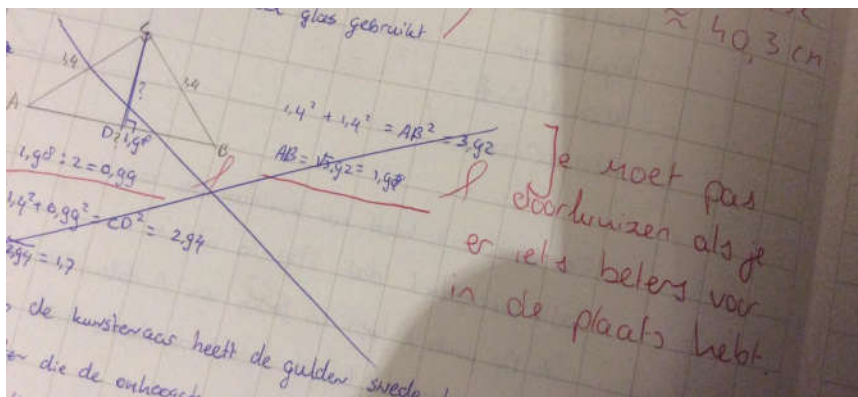 glas gebruikt
≈ 40,3 cm
C
1,4
1,4
?
A
D?
1,98
B
1,4² + 1,4² = AB² = 3,92
AB = √3,92 = 1,98
1,98 : 2 = 0,99
1,4² + 0,99² = CD² = 2,94
√2,94 = 1,7
Je moet pas
doorkruizen als je
er iets beters voor
in de plaats hebt.
de kunstenaar heeft de gulden snede
die de